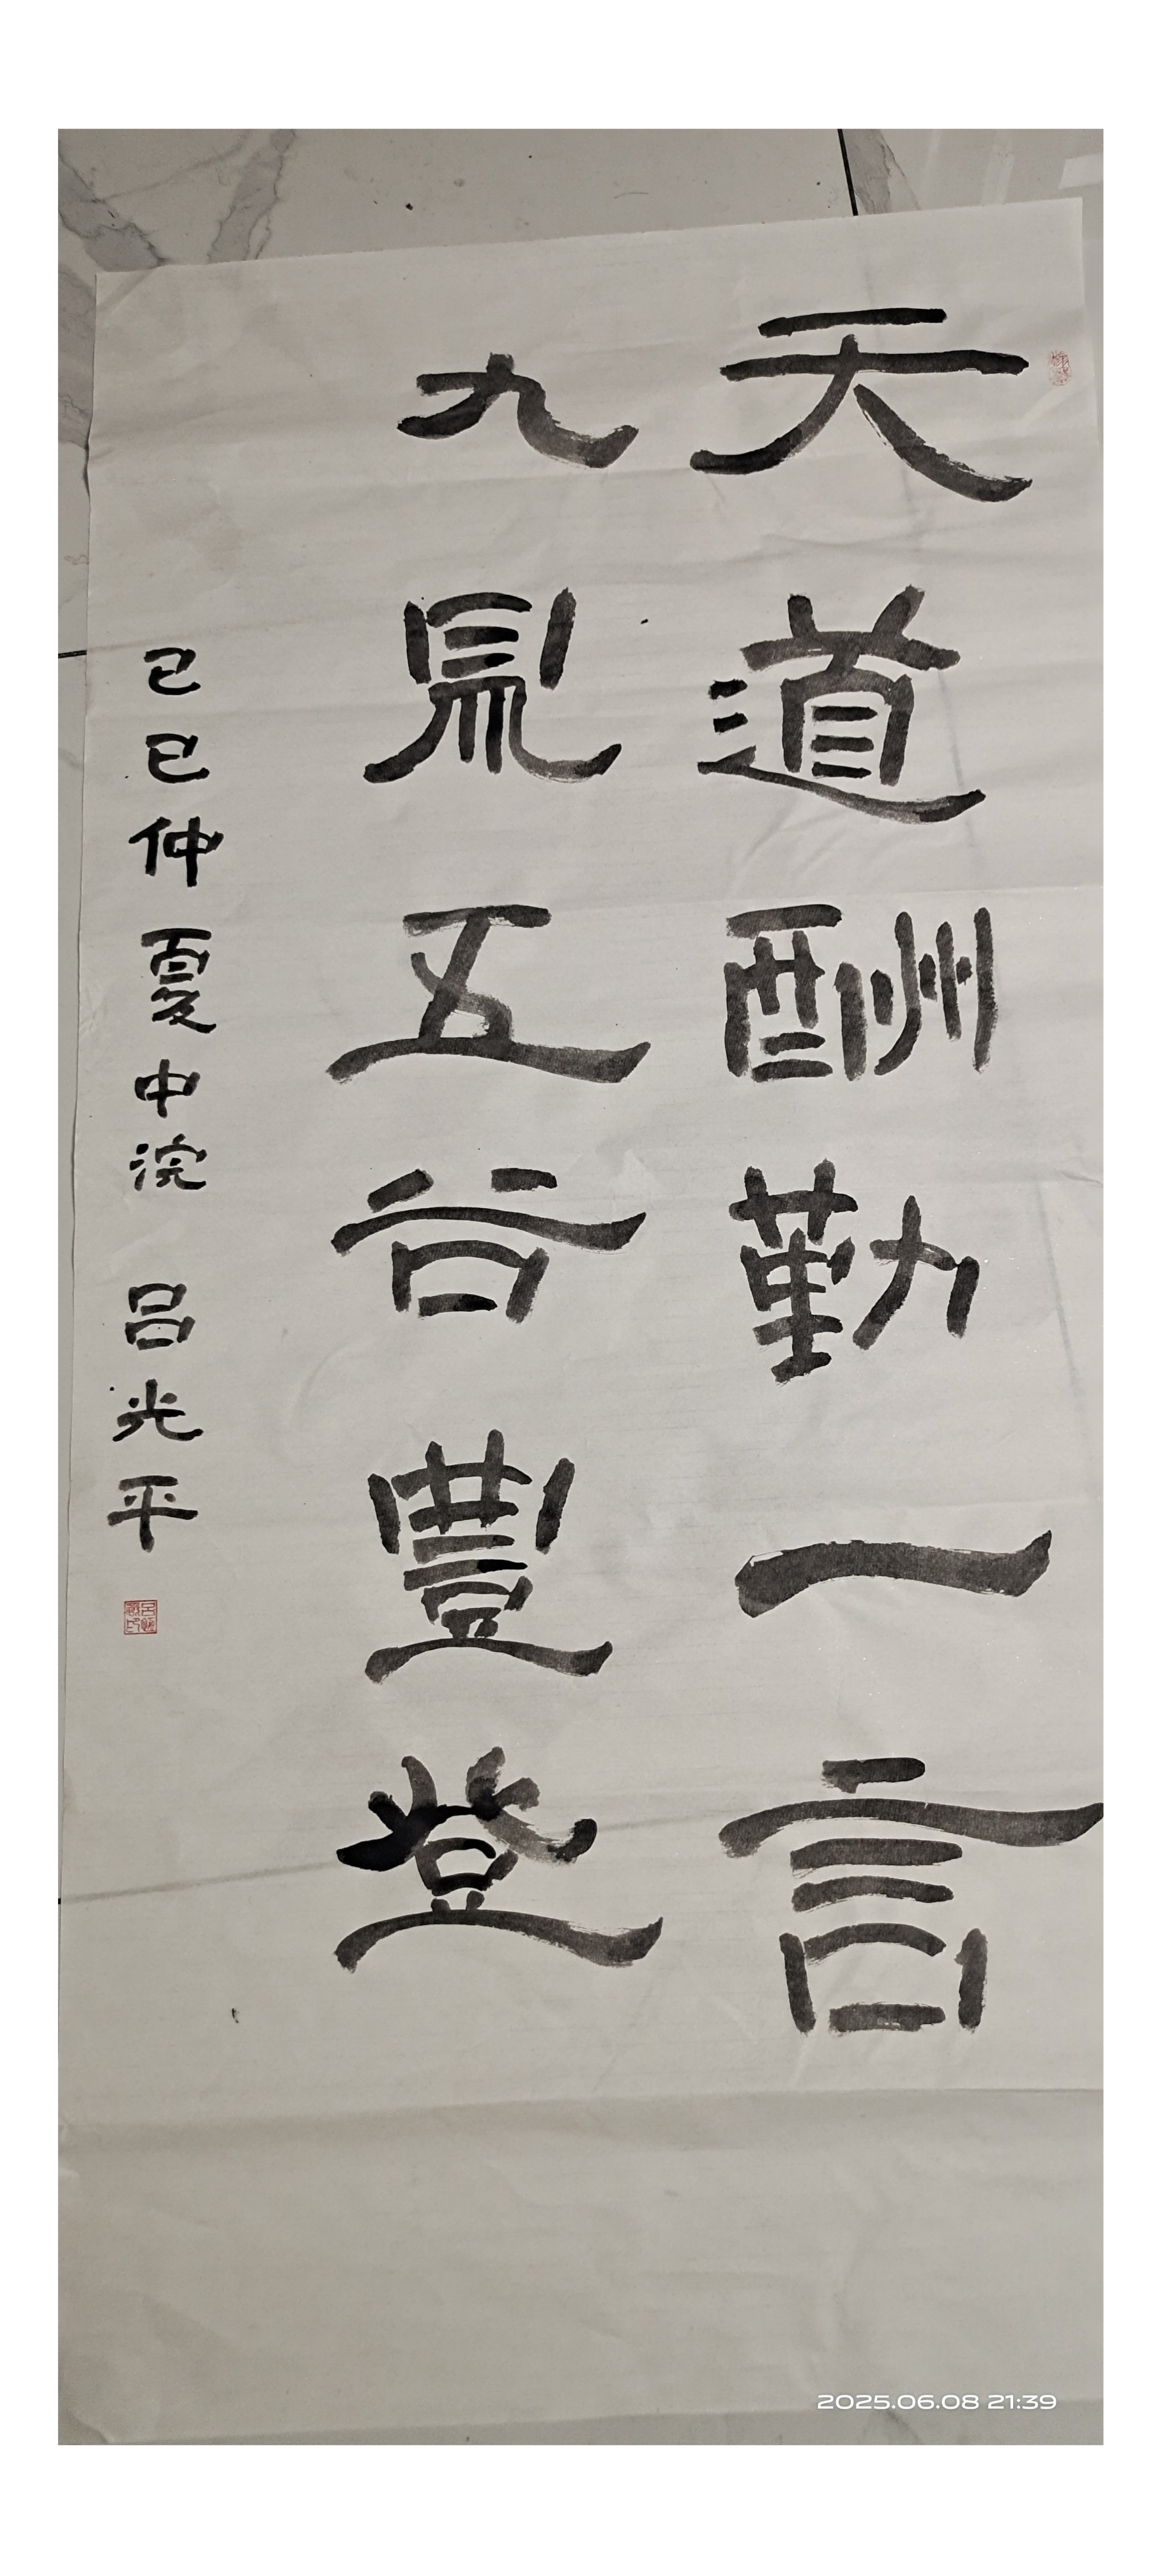 天道酬勤一言
九鼎五谷豐登
乙巳仲夏中浣 吕光平
2025.06.08 21:39